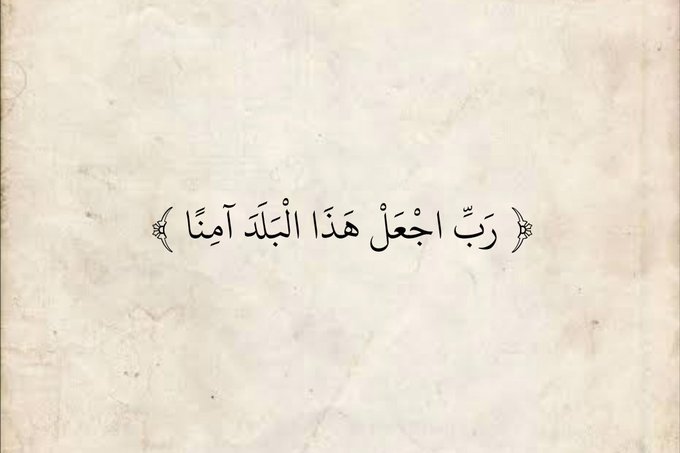 ﴿ رَبِّ اجْعَلْ هَذَا الْبَلَدَ آمِنًا ﴾